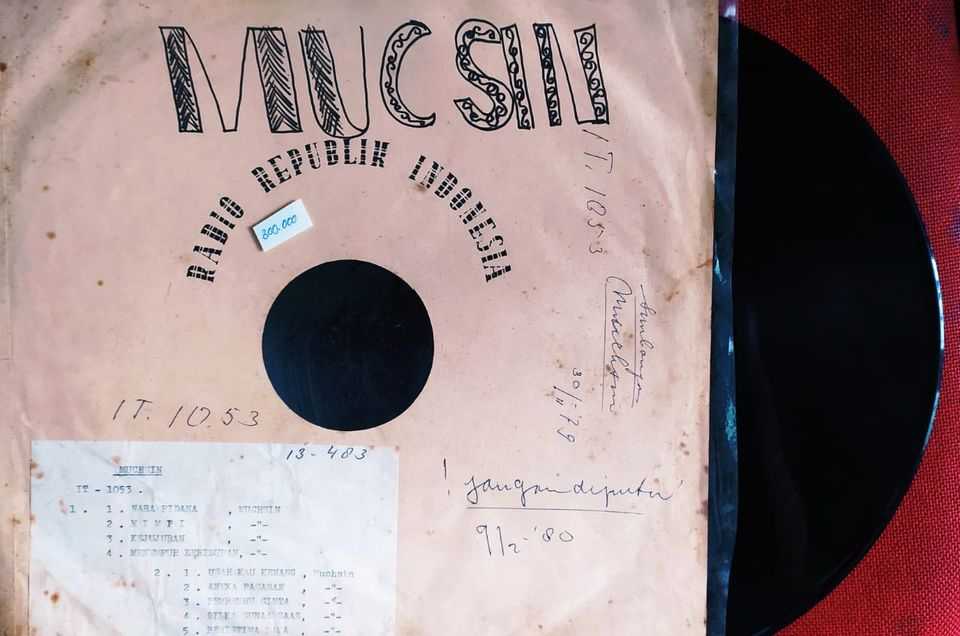 MUCSIN
RADIO REPUBLIK INDONESIA
300.000
IT. 1053
Sumbangan
Muschsin
30/11 '79
IT. 1053
13 - 483
! jangan diputar
9/2 - '80
MUCHSIN
IT - 1053 .
1. 1. NARA PIDANA , MUCHSIN
2. M I M P I , -"-
3. KEJUJURAN , -"-
4. MENJEMPUR KERINDUAN, -"-
2. 1. USAH KAU KENANG , Muchsin
2. ANEKA PAGARAN , -"-
3. CINTA , -"-
4. BILA , -"-
5. , -"-